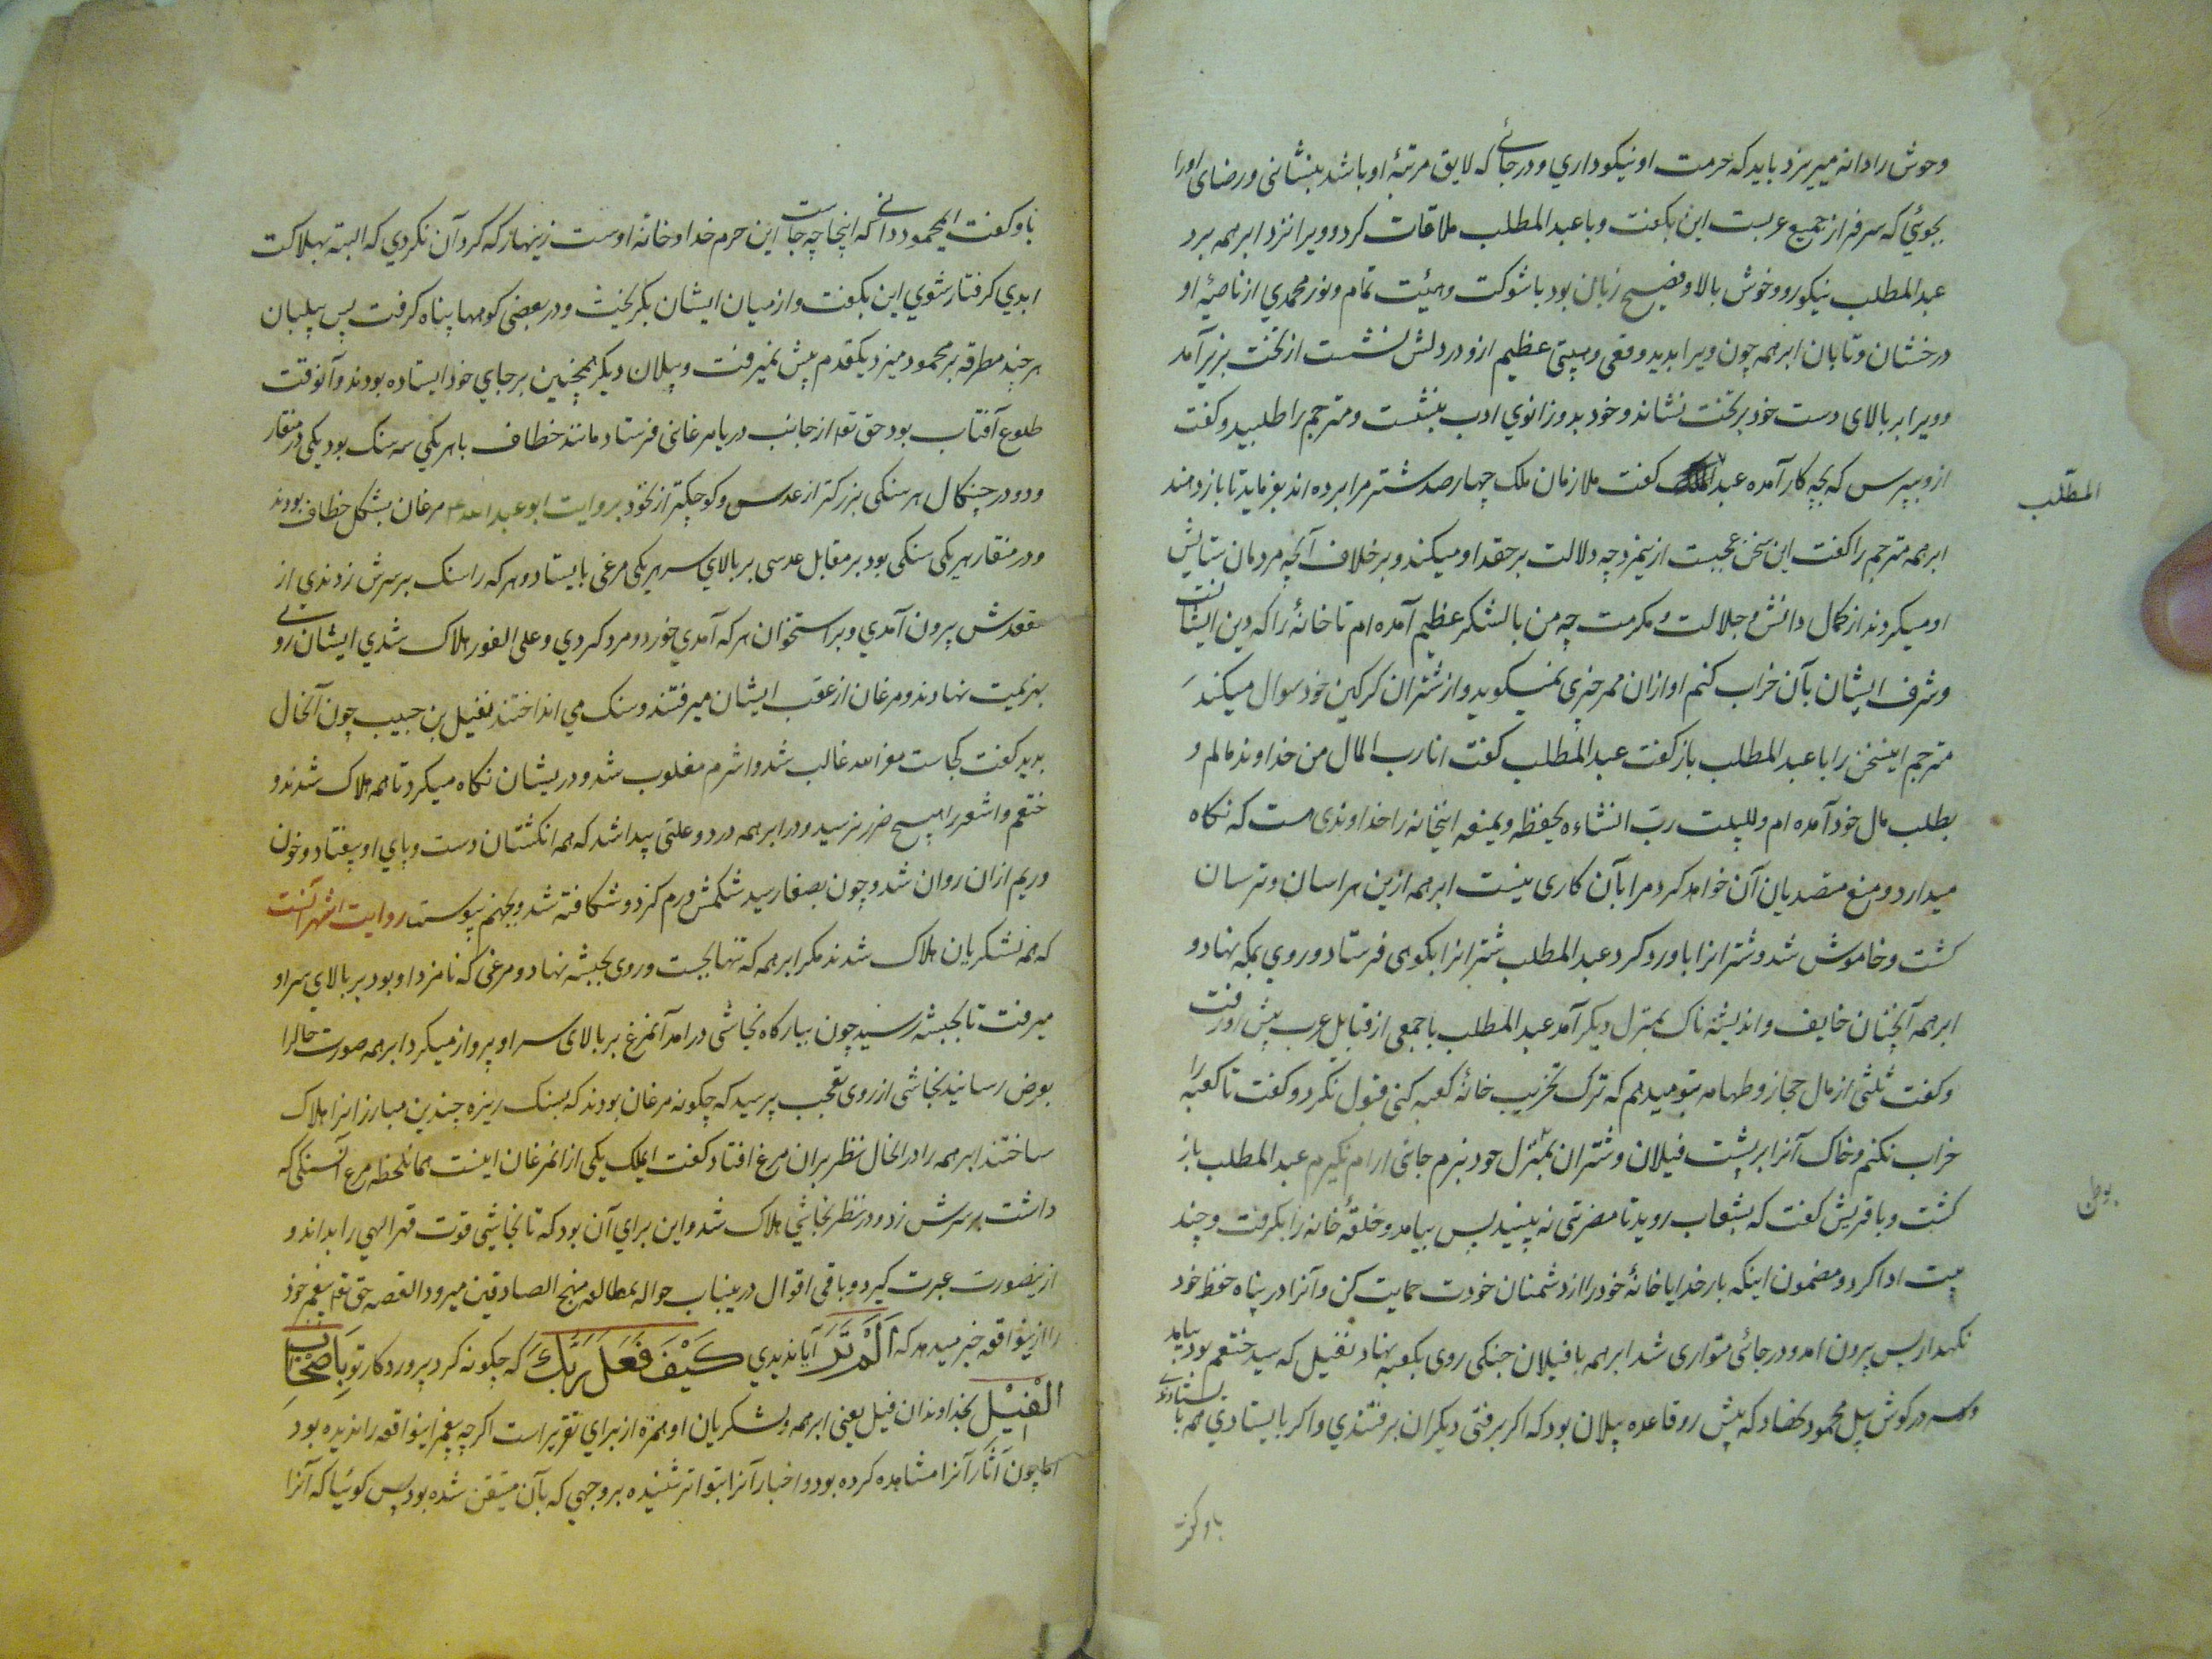 وحوش را دانه میریزد باید که حرمت او نیکو داری و در جائے که لایق مرتبهٔ او باشد بنشانی و رضای او را
بجوئی که سرفراز جمیع عربست این بکفت و با عبد المطلب ملاقات کرد و ویرا نزد ابرهه برد
عبد المطلب نیکورو و خوش بالا و فصیح زبان بود با شوکت و هیئت تمام و نور محمدي از ناصیهٔ او
درخشان و تابان ابرهه چون ویرا بدید وقعی و هیبتی عظیم ازو در دلش نشست از تخت بزیر آمد
و ویرا بر بالای دست خود بر تخت نشاند و خود بدو زانوي ادب بنشست و مترجم را طلبید و کفت
ازو بپرس که بچه کار آمده عبد کفت ملازمان ملک چهار صد شتر مرا برده اند بفرماید تا باز دهند
المطلب
ابرهه مترجم را کفت این سخن عجبست ازینمرد چه دلالت بر حقد او میکند و بر خلاف آنچه مردمان ستایش
او میکردند از کمال دانش و جلالت و مکرمت چه من با لشکر عظیم آمده ام تا خانهٔ را که دین ایشانست
و شرف ایشان بآن خراب کنم او ازان ممر چیزی نمیکوید و از شتران کرکین خود سوال میکند
مترجم اینسخن را با عبد المطلب باز کفت عبد المطلب کفت انا رب المال من خداوند مالم و
بطلب مال خود آمده ام و للبیت رب انشاءه یحفظه و یمنعه اینخانه را خداوندی هست که نکاه
میدارد و منع متصدیان آن خواهد کرد مرا بآن کاری نیست ابرهه ازین هراسان و ترسان
کشت و خاموش شد و شترانرا باو رد کرد عبد المطلب شترانرا بکوهی فرستاد و روي بمکه نهاد و
ابرهه آنچنان خایف و اندیشه ناک بمنزل دیکر آمد عبد المطلب با جمعی از قبایل عرب پیش او رفت
و کفت ثلثی از مال حجاز و طهامه بتو میدهم که ترک تخریب خانهٔ کعبه کنی قبول نکرد و کفت تا کعبه را
خراب نکنم و خاک آنرا بر پشت فیلان و شتران بمنزل خود نبرم جائی ارام نکیرم عبد المطلب باز
کشت و با قریش کفت که بشعاب روید تا مضرتی نه بینید پس بیامد و حلقهٔ خانه را بکرفت و چند
بیت ادا کرد و مضمون اینکه بار خدایا خانهٔ خود را از دشمنان خودت حمایت کن و آنرا در پناه حفظ خود
نکهدار پس بیرون امد و در جائی متواری شد ابرهه با فیلان جنکی روی بکعبه نهاد نفیل که سید خثعم بود بیامد
و سر در کوش پیل محمود نهاد که پیش رو قاعده پیلان بود که اکر برفتی دیکران برفتندي و اکر بایستادي همه بایستادندے
باو کفت
باو کفت ایمحمود دانے که اینجا چه جاست این حرم خدا و خانهٔ اوست زینهار که کرد آن نکردي که البته بهلاکت
ابدي کرفتار شوي این بکفت و از میان ایشان بکریخت و در بعضی کوهها پناه کرفت پس پیلبان
هر چند مطرقه بر محمود میزد یکقدم پیش نمیرفت و پیلان دیکر همچنین بر جاي خود ایستاده بودند و آنوقت
طلوع آفتاب بود حق تع از جانب دریا مرغانی فرستاد مانند خطاف با هر یکي سه سنک بود یکی در منقار
و دو در چنکال هر سنکی بزرکتر از عدس و کوچکتر از نخود بروایت ابو عبد الله مرغان بشکل خطاف بودند
و در منقار هر یکی سنکی بود بر مقابل عدسی بر بالاي سر هر یکی مرغی بایستاد و هر که را سنک بر سرش زدندي از
مقعدش بیرون آمدي و بر استخوان هر که آمدي خورد و مرد کردي و علی الفور هلاک شدي ایشان روے
بهزیمت نهادند و مرغان از عقب ایشان میرفتند و سنک مي انداختند نفیل بن حبیب چون آنحال
بدید کفت کجاست مفر الله غالب شد و اشرم مغلوب شد و دریشان نکاه میکرد تا همه هلاک شدند و
خثعم و اشعر را هیچ ضرر نرسید و در ابرهه درد و علتی پیدا شد که همه انکشتان دست و پاي او بیفتاد و خون
و ریم ازان روان شد و چون بصنعا رسید شکمش ورم کرد و شکافته شد و بجهنم پیوست روایت اشهر آنست
که همه لشکریان هلاک شدند مکر ابرهه که تنها بجست و روی بحبشه نهاد و مرغی که نامزد او بود بر بالای سر او
میرفت تا بحبشه رسید چون ببارکاه نجاشی درامد آنمرغ بر بالای سر او پرواز میکرد ابرهه صورت حال را
بعرض رسانید نجاشی از روی تعجب پرسید که چکونه مرغان بودند که بسنک ریزه چندین مبارزانرا هلاک
ساختند ابرهه را در الحال نظر بران مرغ افتاد کفت ایملک یکی از انمرغان اینست همانلحظه مرغ آنسنکی که
داشت بر سرش زد و در نظر نجاشي هلاک شد و این براي آن بود که تا نجاشی قوت قهر الهي را بداند و
ازینصورت عبرت کیرد و باقی اقوال درینباب حواله بمطالعه منهج الصادقین میرود القصه حق تع پیغمبر خود
را ازینواقعه خبر میدهد که اَلَمْ تَرَ آیا ندیدي کَیْفَ فَعَلَ رَبُّکَ که چکونه کرد پروردکار تو بِاَصْحَابِ
الْفِیْلِ بخداوندان فیل یعنی ابرهه و لشکریان او همزه از براي تقریر است اکر چه پیغمبر اینواقعه را ندیده بود
اما چون آثار آنرا مشاهده کرده بود و اخبار آنرا بتواتر شنیده بر وجهي که بآن متیقن شده بود پس کوئیا که آنرا